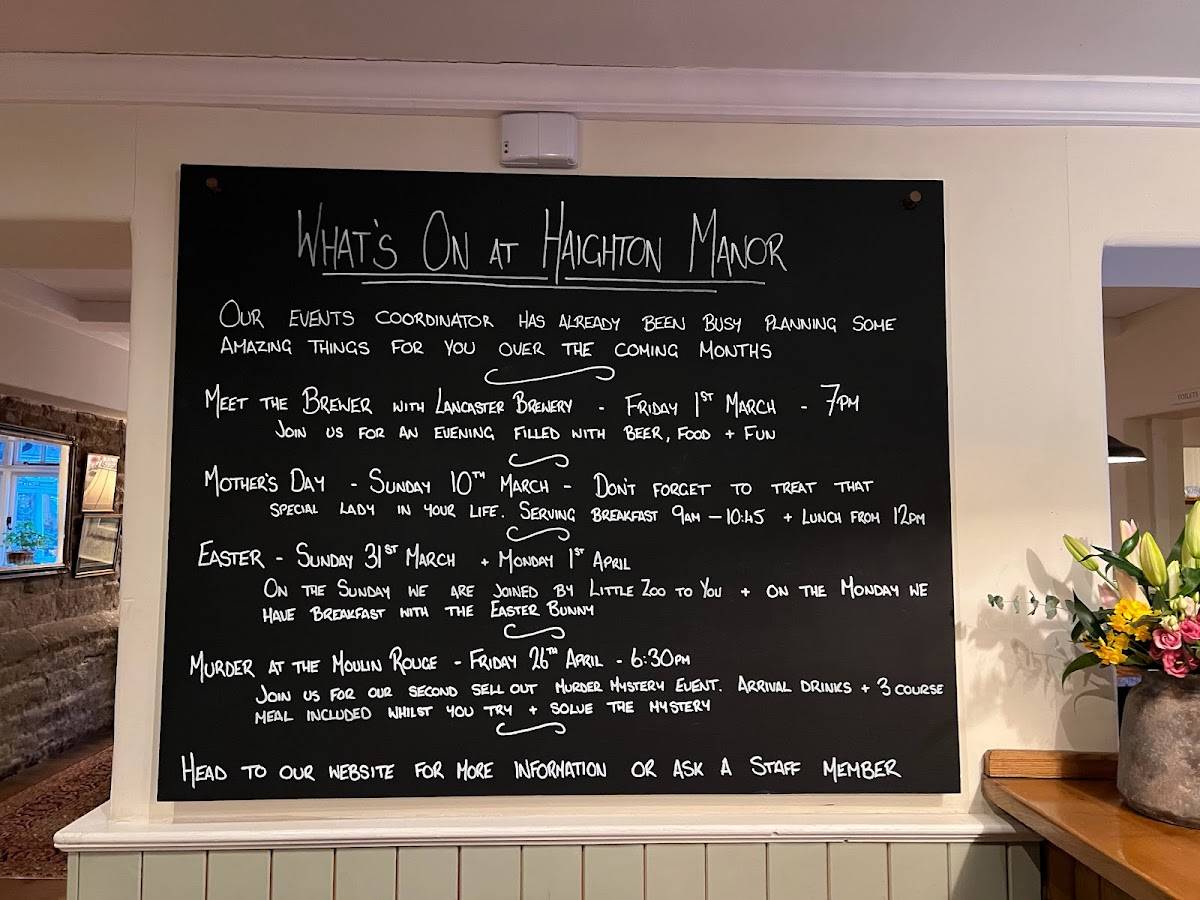 What's On at Haighton Manor
Our events coordinator has already been busy planning some
amazing things for you over the coming months
Meet the Brewer with Lancaster Brewery - Friday 1st March - 7pm
Join us for an evening filled with beer, food + fun
Mother's Day - Sunday 10th March - Don't forget to treat that
special lady in your life. Serving breakfast 9am - 10:45 + lunch from 12pm
Easter - Sunday 31st March + Monday 1st April
On the Sunday we are joined by Little Zoo to You + on the Monday we
have breakfast with the Easter Bunny
Murder at the Moulin Rouge - Friday 26th April - 6:30pm
Join us for our second sell out murder mystery event. Arrival drinks + 3 course
meal included whilst you try + solve the mystery
Head to our website for more information or ask a staff member
TOILETS